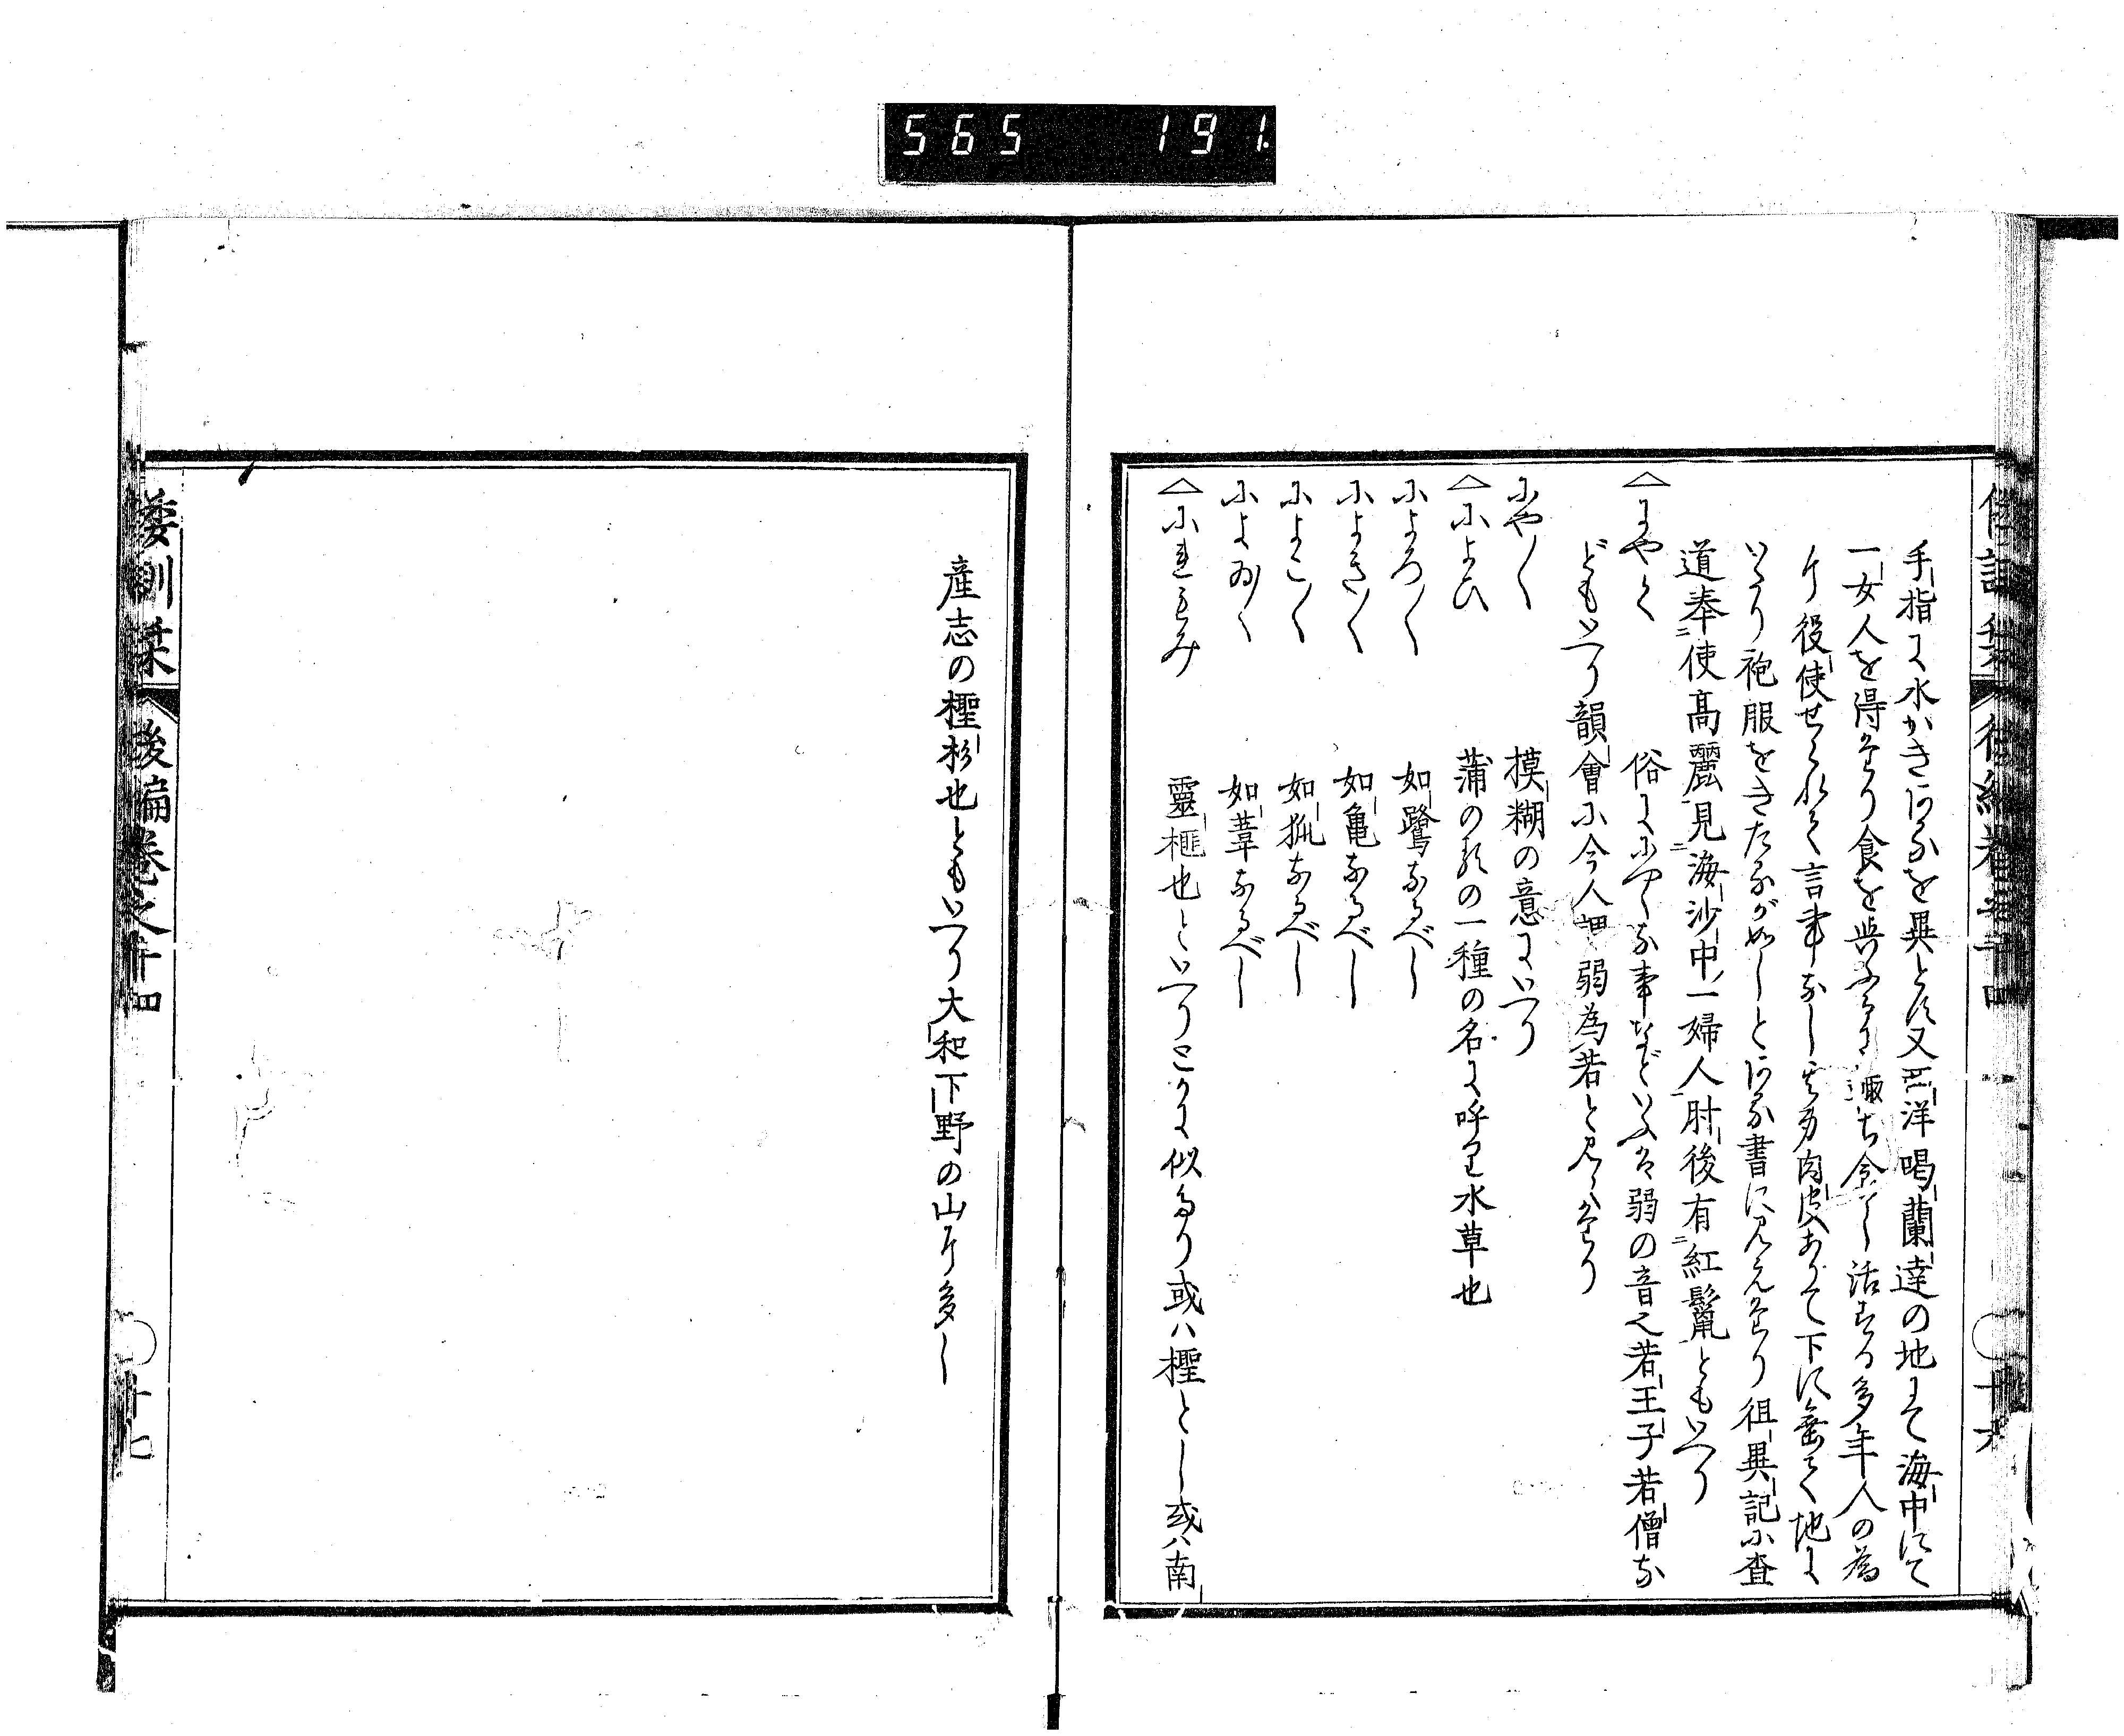 565 191
手指に水かきあるを異とす又西洋喝蘭達の地にて海中にて
一女人を得たり食を与ふるに輙ち令し活きる多年人の為
に役使せられて言事なし其身肉皮ありて下に垂て地に
いたり袍服をきたるが如しとある書に見えたり徂異記に査
道奉使高麗見海沙中一婦人肘後有紅鬣ともいへり
△にやく 俗ににやくな事などいふは弱の音也若王子若僧な
どもいへり韻會に今人謂弱為若と見えたり
にや〳〵 摸糊の意にいへり
△によひ 蒲の類の一種の名に呼り水草也
によろ〳〵 如鷺なるべし
によき〳〵 如亀なるべし
によこ〳〵 如狐なるべし
によゐ〳〵 如葦なるべし
△にれもみ 靈榧也といへりこかに似たり或ハ檉とし或ハ南
産志の檉杉也ともいへり大和下野の山に多し
倭訓栞 後編巻之十四 〇十七